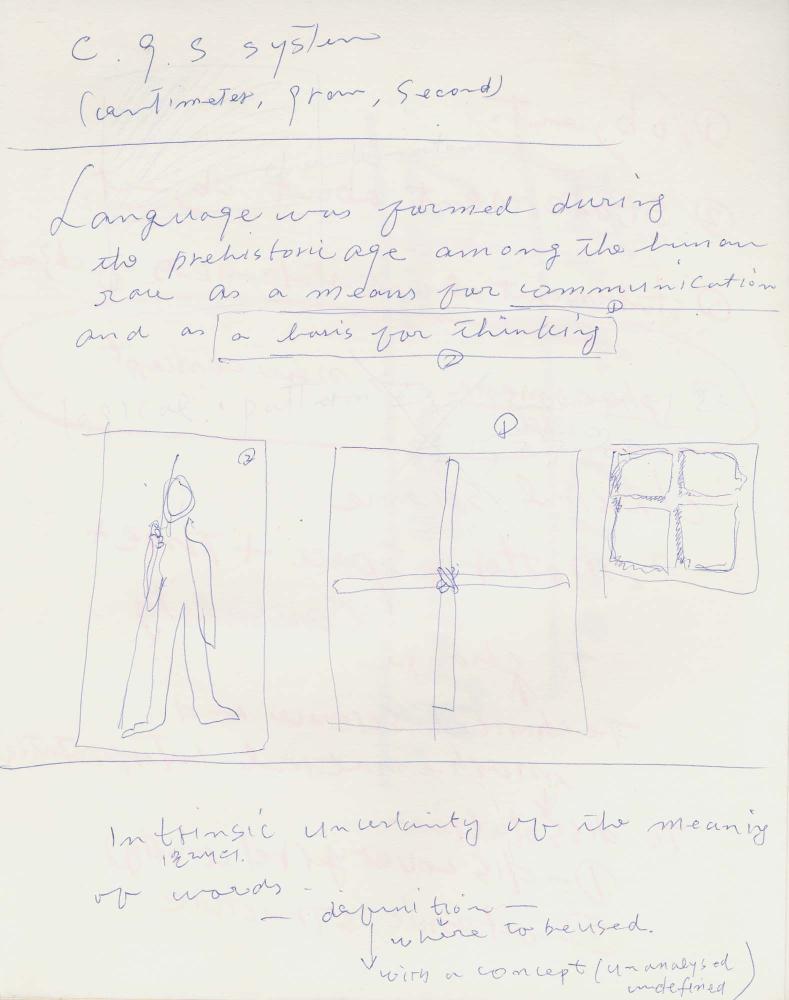 C. g. s system
(centimeter, gram, second)
Language was formed during
the prehistoric age among the human
race as a means for communication
①
and as a basis for thinking
②
①
②
Intrinsic uncertainty of the meaning
of words -
— definition —
where to be used.
with a concept (unanalysed
undefined)